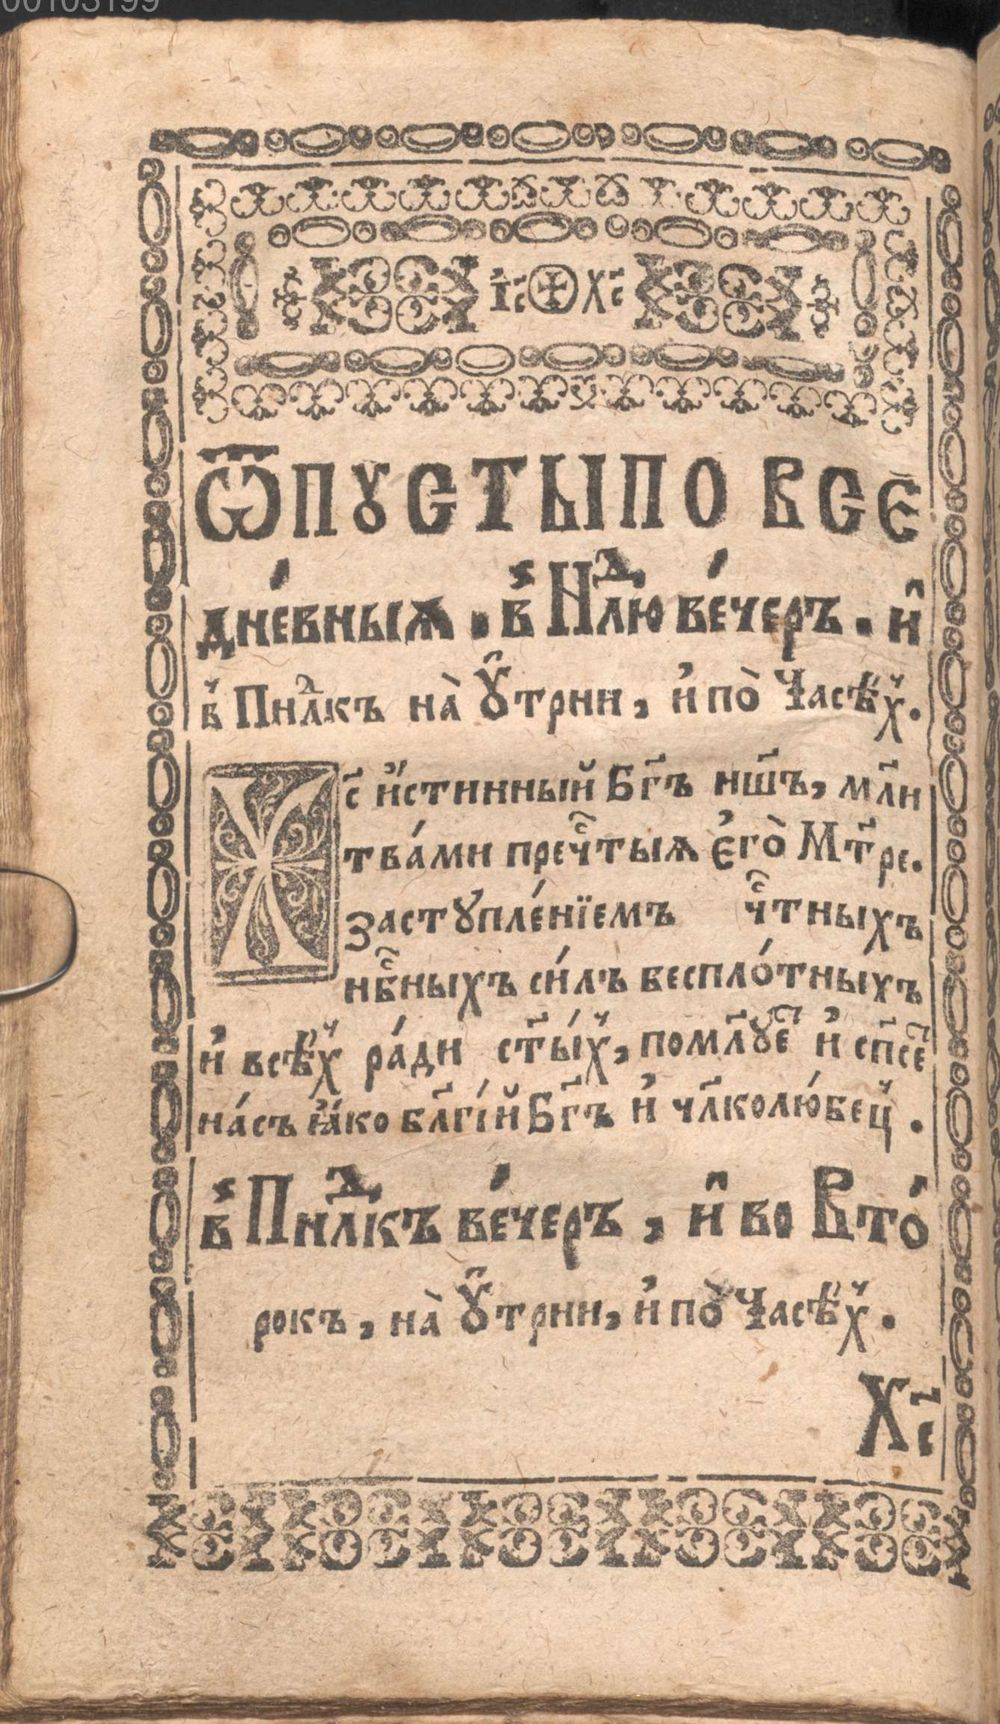 00103199
І҃с Х҃с
ѾПꙊСТЫ ПО ВСЕ
дне́вныѧ. в̾ Нⷣлю ве́черъ. и҆
в̾ Пнⷣлкъ на̀ Ꙋ҆трни, и҆ по̀ Часѣⷯ.
Х҃с и҆́стинный Бг҃ъ нш҃ъ, мл҃и
тва́ми пречⷭ҇тыѧ є҆гѡ̀ Мт҃ре.
застꙋпле́нїемъ чⷭ҇тныхъ
нбⷭ҇ныхъ си́лъ беспло́тныхъ
и҆ всѣⷯ ра́ди ст҃ы́ⷯ, помл҃ꙋеⷮ и҆ сп҃сеⷮ
на́съ ꙗ҆́ко бл҃гі́й Бг҃ъ и҆ чл҃колю́бец̾.
в̾ Пнⷣлкъ ве́черъ, и҆ во Вто́
рокъ, на̀ Ꙋ҆трни, и҆ по̀ Часѣⷯ.
Хс҃ъ